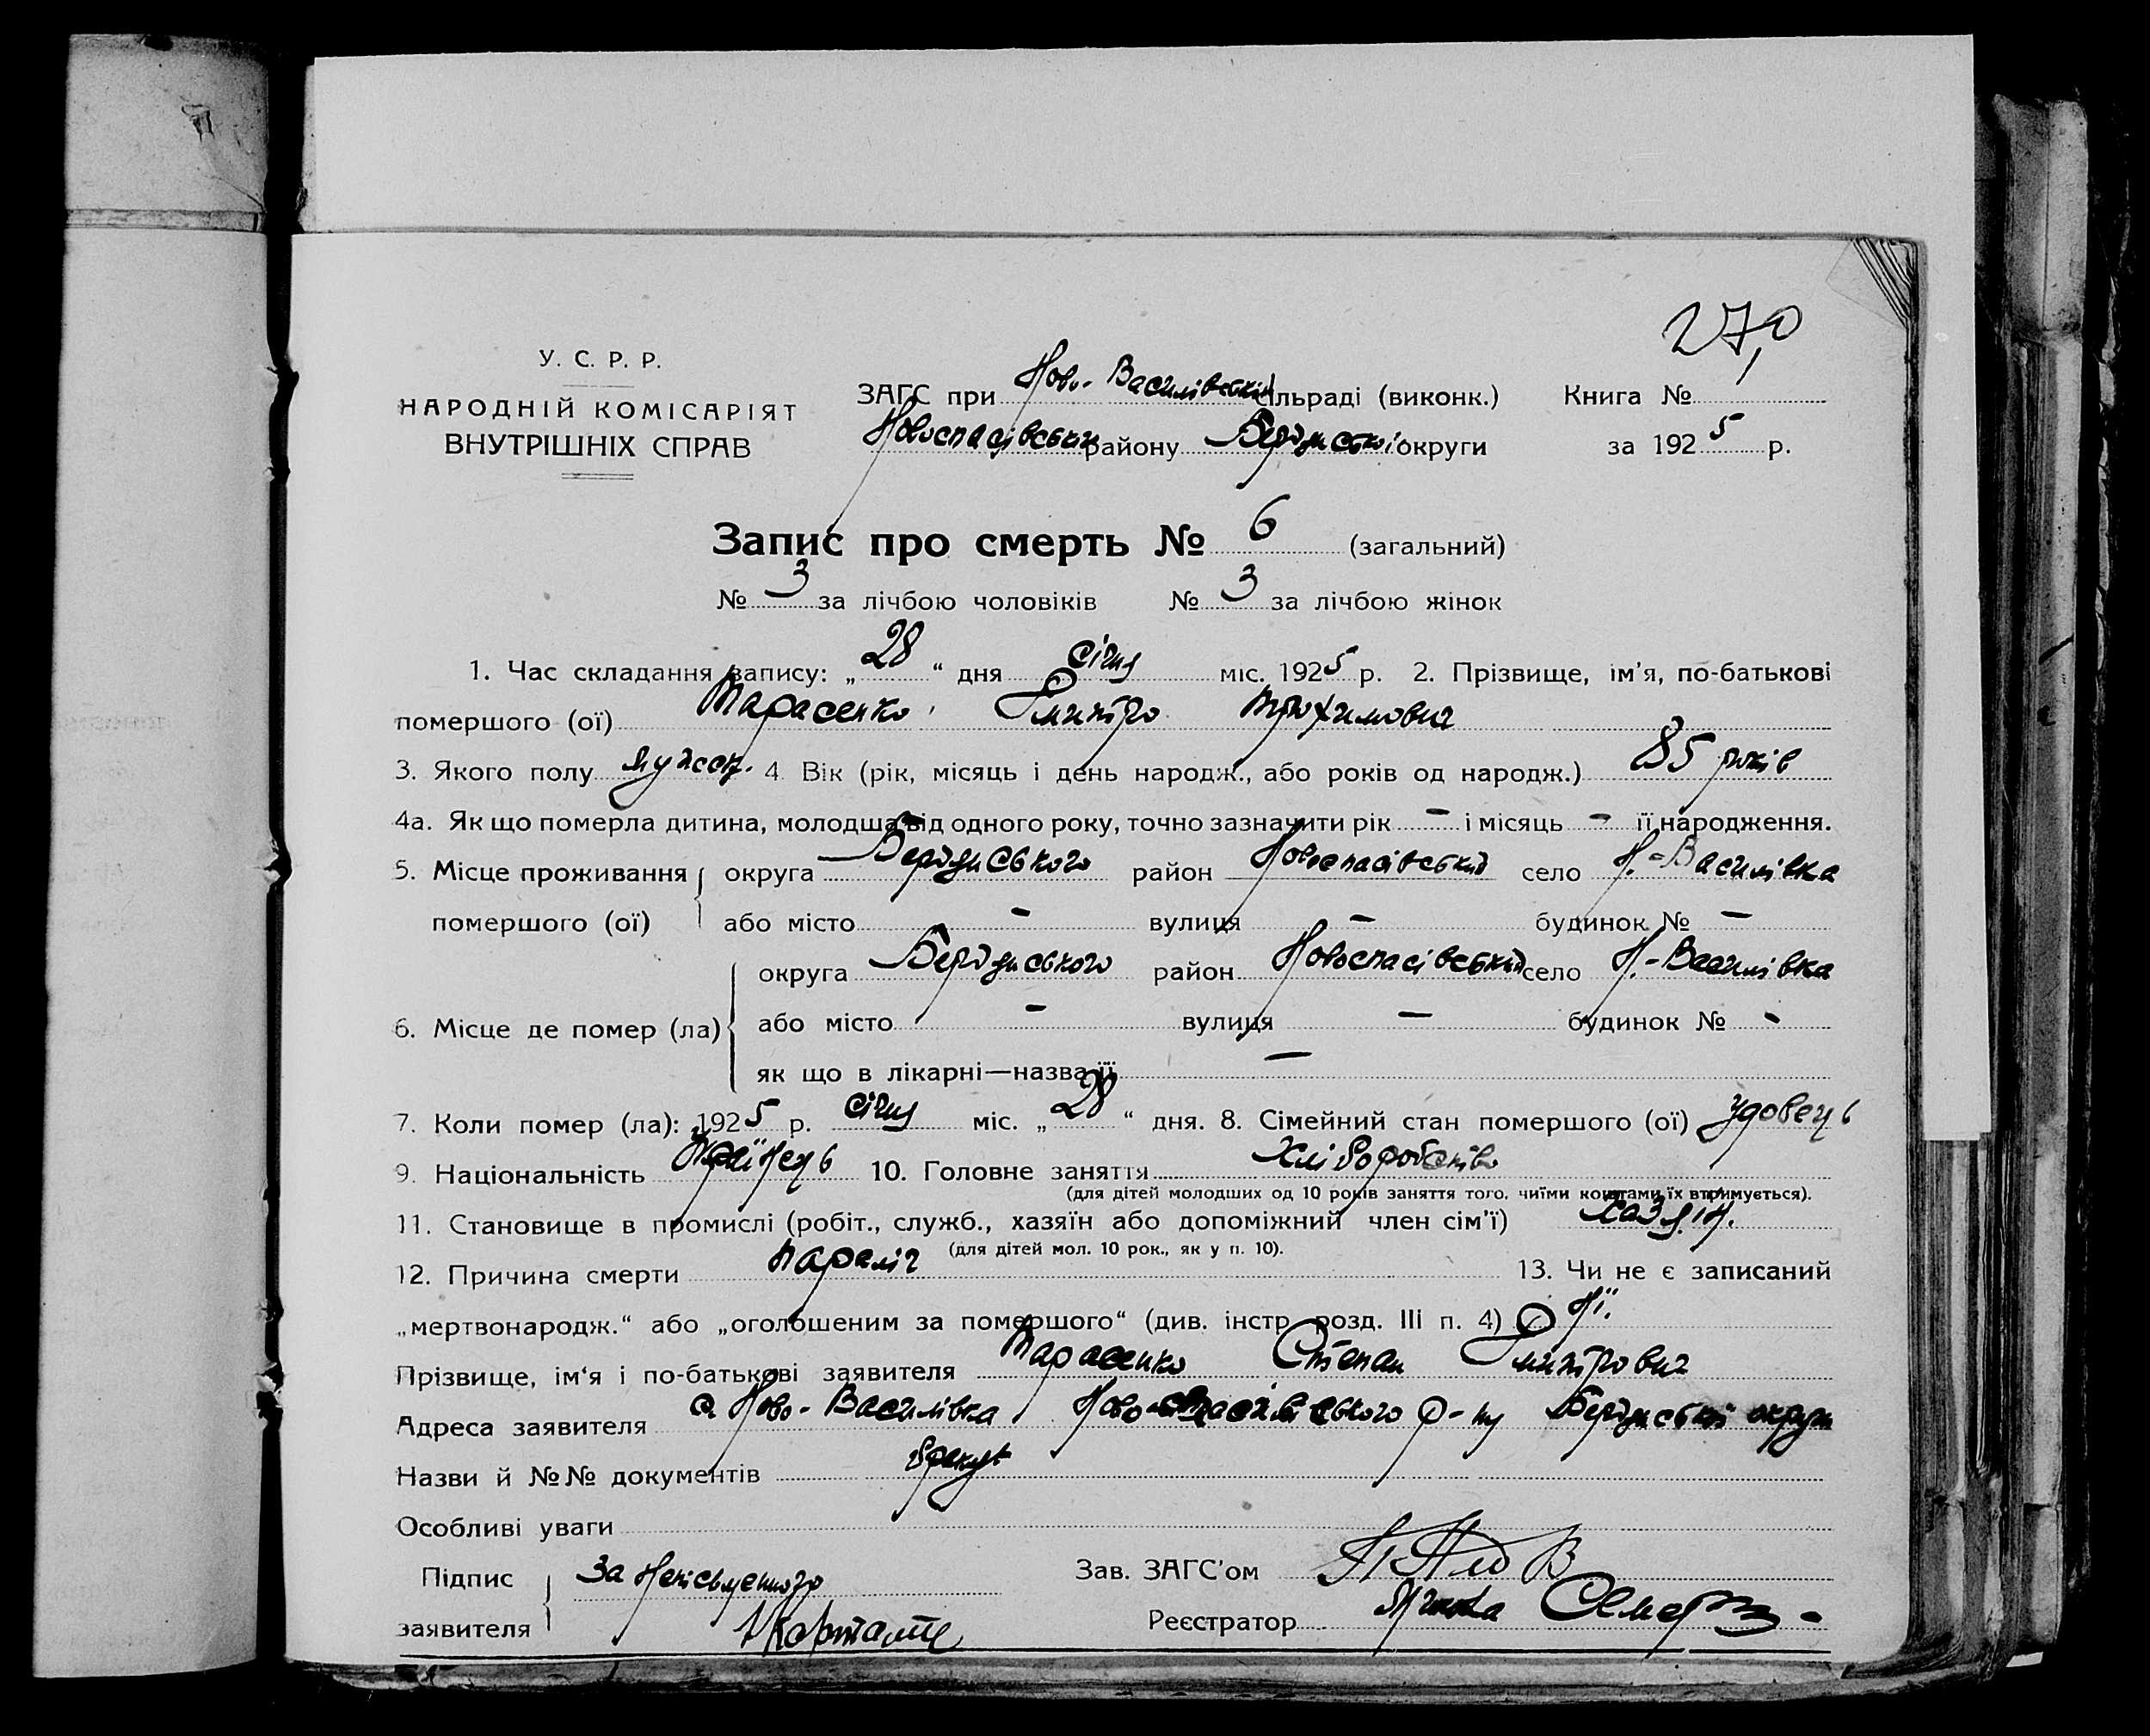 270
У. С. Р. Р.
НАРОДНІЙ КОМІСАРІЯТ
ВНУТРІШНІХ СПРАВ
ЗАГС при Ново-Василівській сільраді (виконк.) Книга №
Новоспасівськ району Бердянської округи за 1925 р.
Запис про смерть № 6 (загальний)
№ 3 за лічбою чоловіків № 3 за лічбою жінок
1. Час складання запису: „28“ дня січня міс. 1925 р. 2. Прізвище, ім’я, по-батькові
помершого (ої) Тарасенко Дмитро Трохимович
3. Якого полу мужеск. 4. Вік (рік, місяць і день народж., або років од народж.) 85 років
4а. Як що померла дитина, молодша від одного року, точно зазначити рік – і місяць – її народження.
5. Місце проживання округа Бердянського район Новоспасівський село Н.-Василівка
помершого (ої) або місто – вулиця – будинок № –
округа Бердянського район Новоспасівський село Н.-Василівка
6. Місце де помер (ла) або місто – вулиця – будинок № -
як що в лікарні—назва її –
7. Коли помер (ла): 1925 р. січня міс. „28“ дня. 8. Сімейний стан помершого (ої) удовець
9. Національність Українець 10. Головне заняття Хліборобство
(для дітей молодших од 10 років заняття того, чиїми коштами їх втримується).
11. Становище в промислі (робіт., служб., хазяїн або допоміжний член сім’ї) хазяїн.
(для дітей мол. 10 рок., як у п. 10).
12. Причина смерти параліч 13. Чи не є записаний
„мертвонародж.“ або „оголошеним за помершого“ (див. інстр. розд. III п. 4) Ні.
Прізвище, ім‘я і по-батькові заявителя Тарасенко Степан Дмитрович
Адреса заявителя с. Ново-Василівка Ново-спасівського р-ну Бердянської округи
Назви й №№ документів
Особливі уваги
Підпис За неписьменного Зав. ЗАГС’ом
заявителя Реєстратор